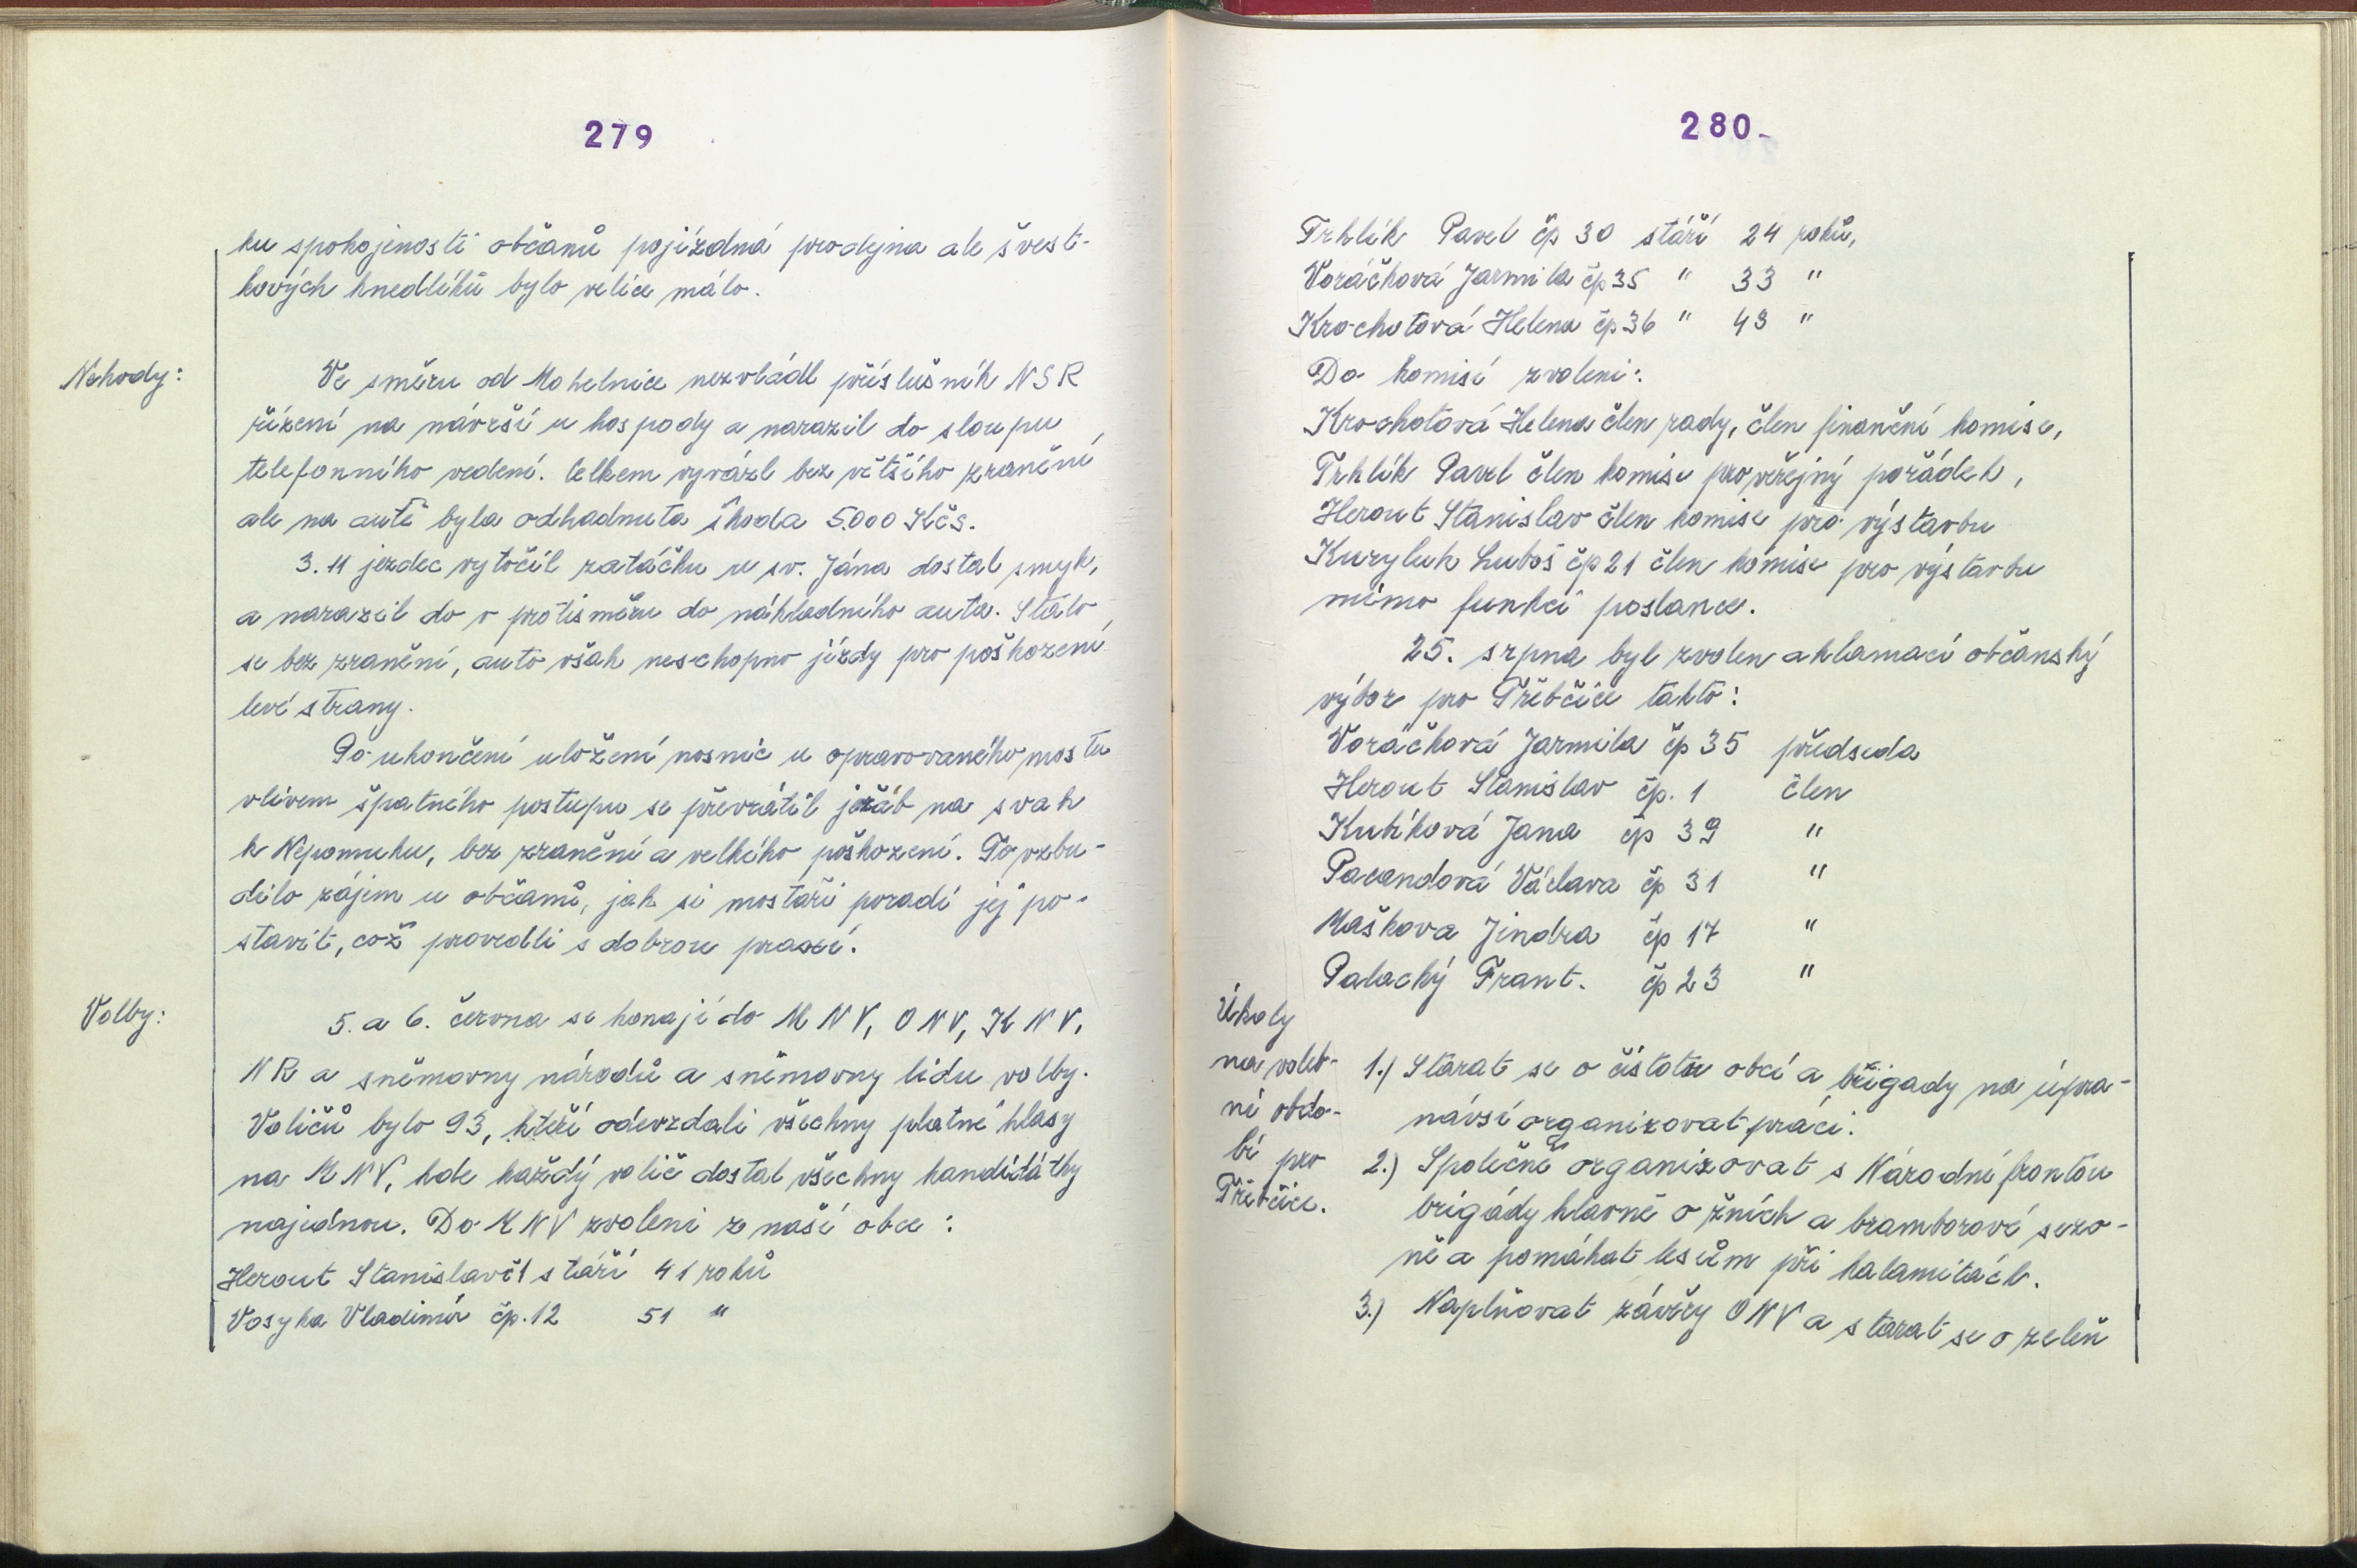 279
ku spokojenosti občanů pojízdná prodejna ale švest-
kových knedlíků bylo velice málo.
Nehody:
Ve směru od Mohelnice nezvládl příslušník NSR
řízení na návrší u hospody a narazil do sloupu
telefonního vedení. Celkem vyvázl bez většího zranění
ale na autě byla odhadnuta škoda 5.000 Kčs.
3. 11 jezdec vytočil zatáčku u sv. Jána dostal smyk,
a narazil do v protisměru do nákladního auta. Stalo
se bez zranění, auto však neschopno jízdy pro poškození
levé strany.
Po ukončení uložení nosnic u opravovaného mostu
vlivem špatného postupu se převrátil jeřáb na svah
k Nepomuku, bez zranění a velkého poškození. To vzbu-
dilo zájem u občanů, jak si mostaři poradí jej po-
stavit, což provedli s dobrou praxí.
Volby:
5. a 6. června se konají do MNV, ONV, KNV,
NR a sněmovny národů a sněmovny lidu volby.
Voličů bylo 93, kteří odevzdali všechny platné hlasy
na MNV, kde každý volič dostal všechny kandidátky
najednou. Do MNV zvoleni z naší obce:
Herout Stanislav č1 stáří 41 roků
Vosyka Vladimír čp. 12 51 "
280
Trhlík Pavel čp 30 stáří 24 roků,
Voráčková Jarmila čp 35 " 33 "
Krochotová Helena čp 36 " 43 "
Do komisí zvoleni:
Krochotová Helena člen rady, člen finanční komise,
Trhlík Pavel člen komise pro veřejný pořádek,
Herout Stanislav člen komise pro výstavbu
Kuryluk Luboš čp 21 člen komise pro výstavbu
mimo funkci poslance.
25. srpna byl zvolen aklamací občanský
výbor pro Třebčice takto:
Voráčková Jarmila čp 35 předseda
Herout Stanislav čp. 1 člen
Kubíková Jana čp 39 "
Pacandová Václava čp 31 "
Maškova Jindra čp 17 "
Palacký Frant. čp 23 "
Úkoly
na voleb-
ní obdo-
bí pro
Třebčice.
1.) Starat se o čistotu obcí a brigady na úpra-
návsí organizovat práci.
2.) Společně organizovat s Národní frontou
brigády hlavně o žních a bramborové sezo-
ně a pomáhat lesům při kalamitách.
3.) Naplňovat závěry ONV a starat se o zeleň